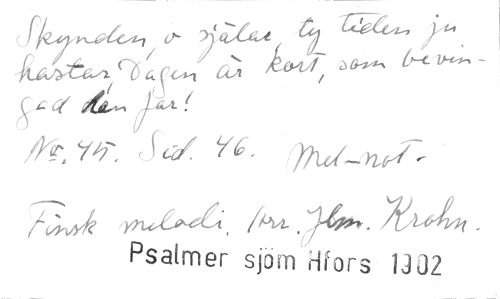 Skynden, o själar, ty tiden ju
hastar, Dagen är kort, som bevin-
gad den far!
No. 45. Sid. 46. Mel-not.
Finsk melodi. Arr. Ilm. Krohn.
Psalmer sjöm Hfors 1902